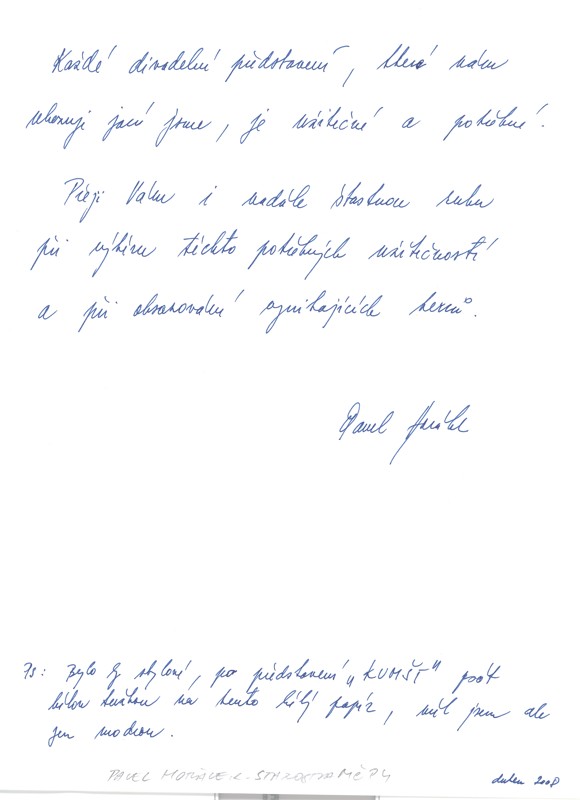 Každé divadelní představení, které nám
ukazují jací jsme, je užitečné a potřebné.
Přeji Vám i nadále šťastnou ruku
při výběru těchto potřebných užitečností
a při obsazování vynikajících herců.
Pavel
Ps: Bylo by stylové, po představení „KUMŠT" psát
bílou tužkou na tento bílý papír, měl jsem ale
jen modrou.
PAVEL STAROSTA MČ P4
duben 2008